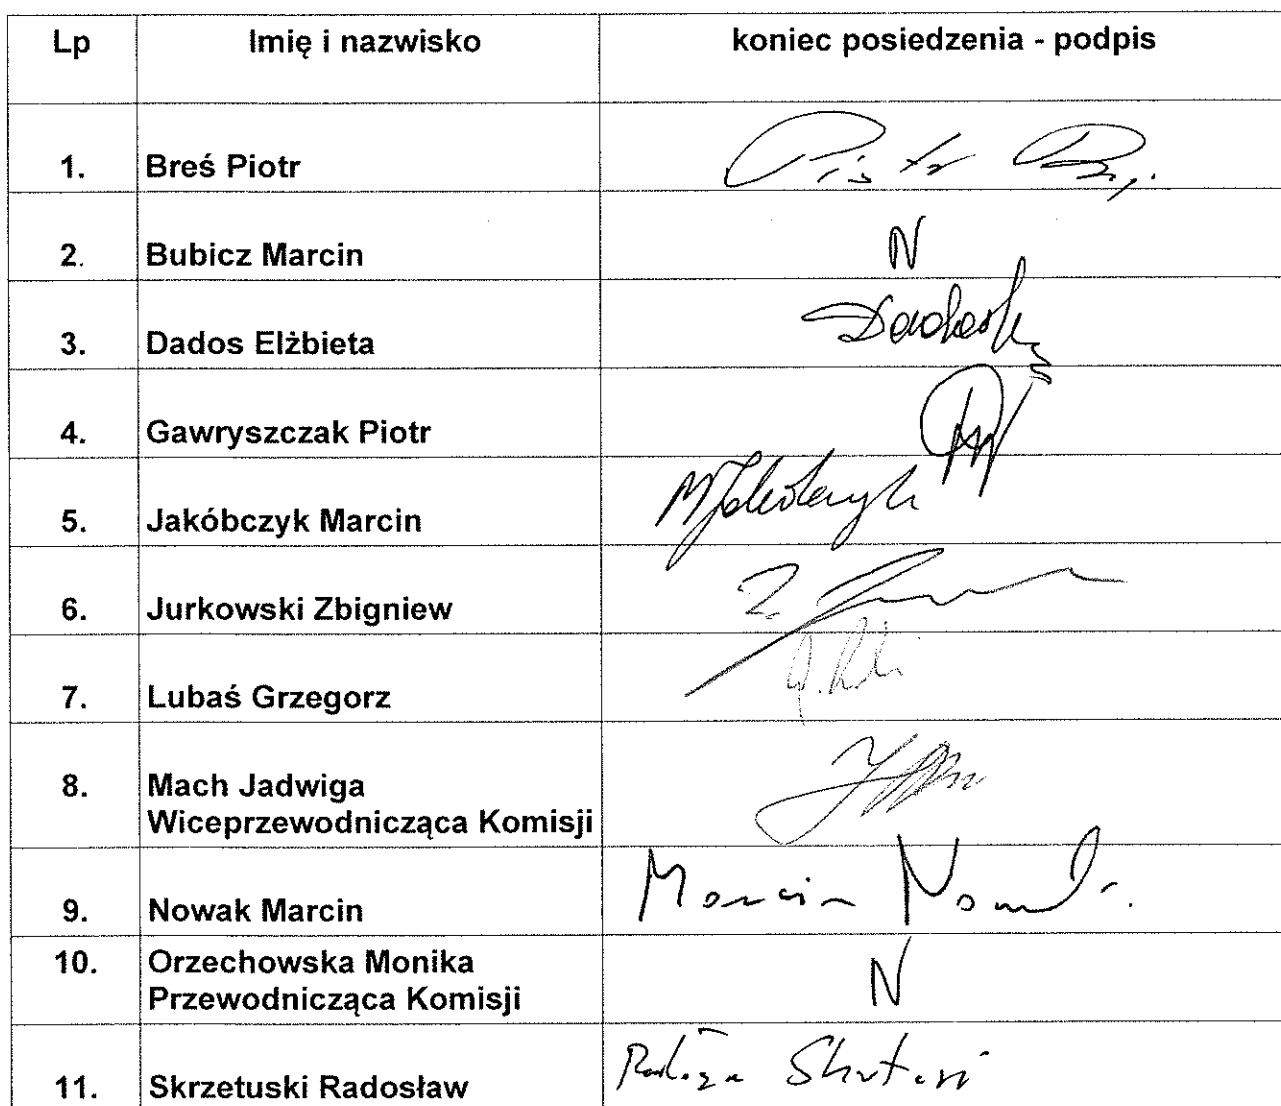 Lp Imię i nazwisko koniec posiedzenia - podpis
1. Breś Piotr Piotr
2. Bubicz Marcin N
3. Dados Elżbieta
4. Gawryszczak Piotr
5. Jakóbczyk Marcin
6. Jurkowski Zbigniew Z.
7. Lubaś Grzegorz
8. Mach Jadwiga
Wiceprzewodnicząca Komisji
9. Nowak Marcin Marcin Nowak
10. Orzechowska Monika N
Przewodnicząca Komisji
11. Skrzetuski Radosław